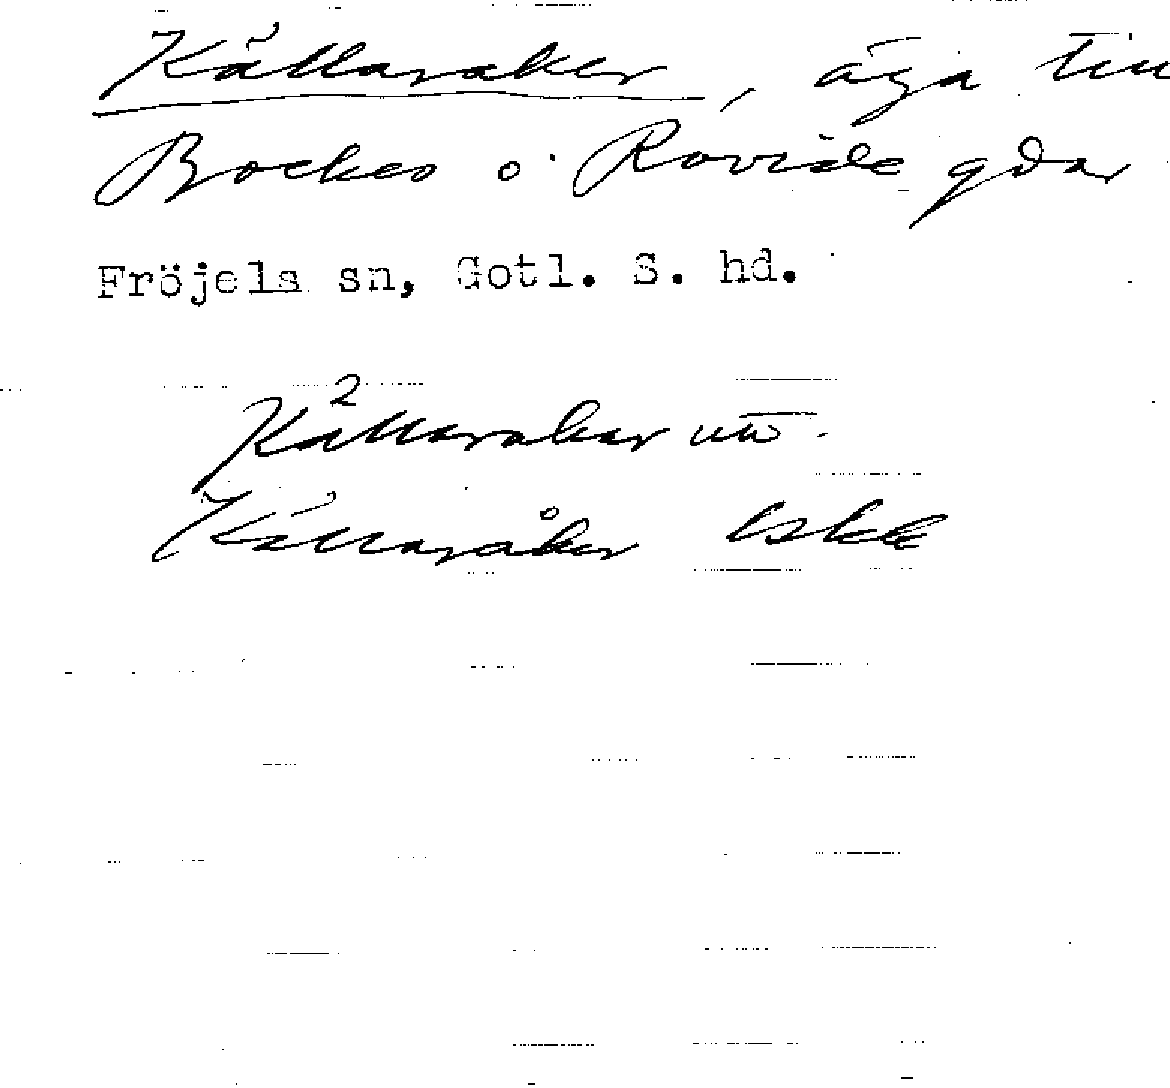 Källaraker, äga till
Bockes o. Rovide gdar
Fröjels sn, Gotl. S. hd.
Källaraker utt.
Källaråker Iskk